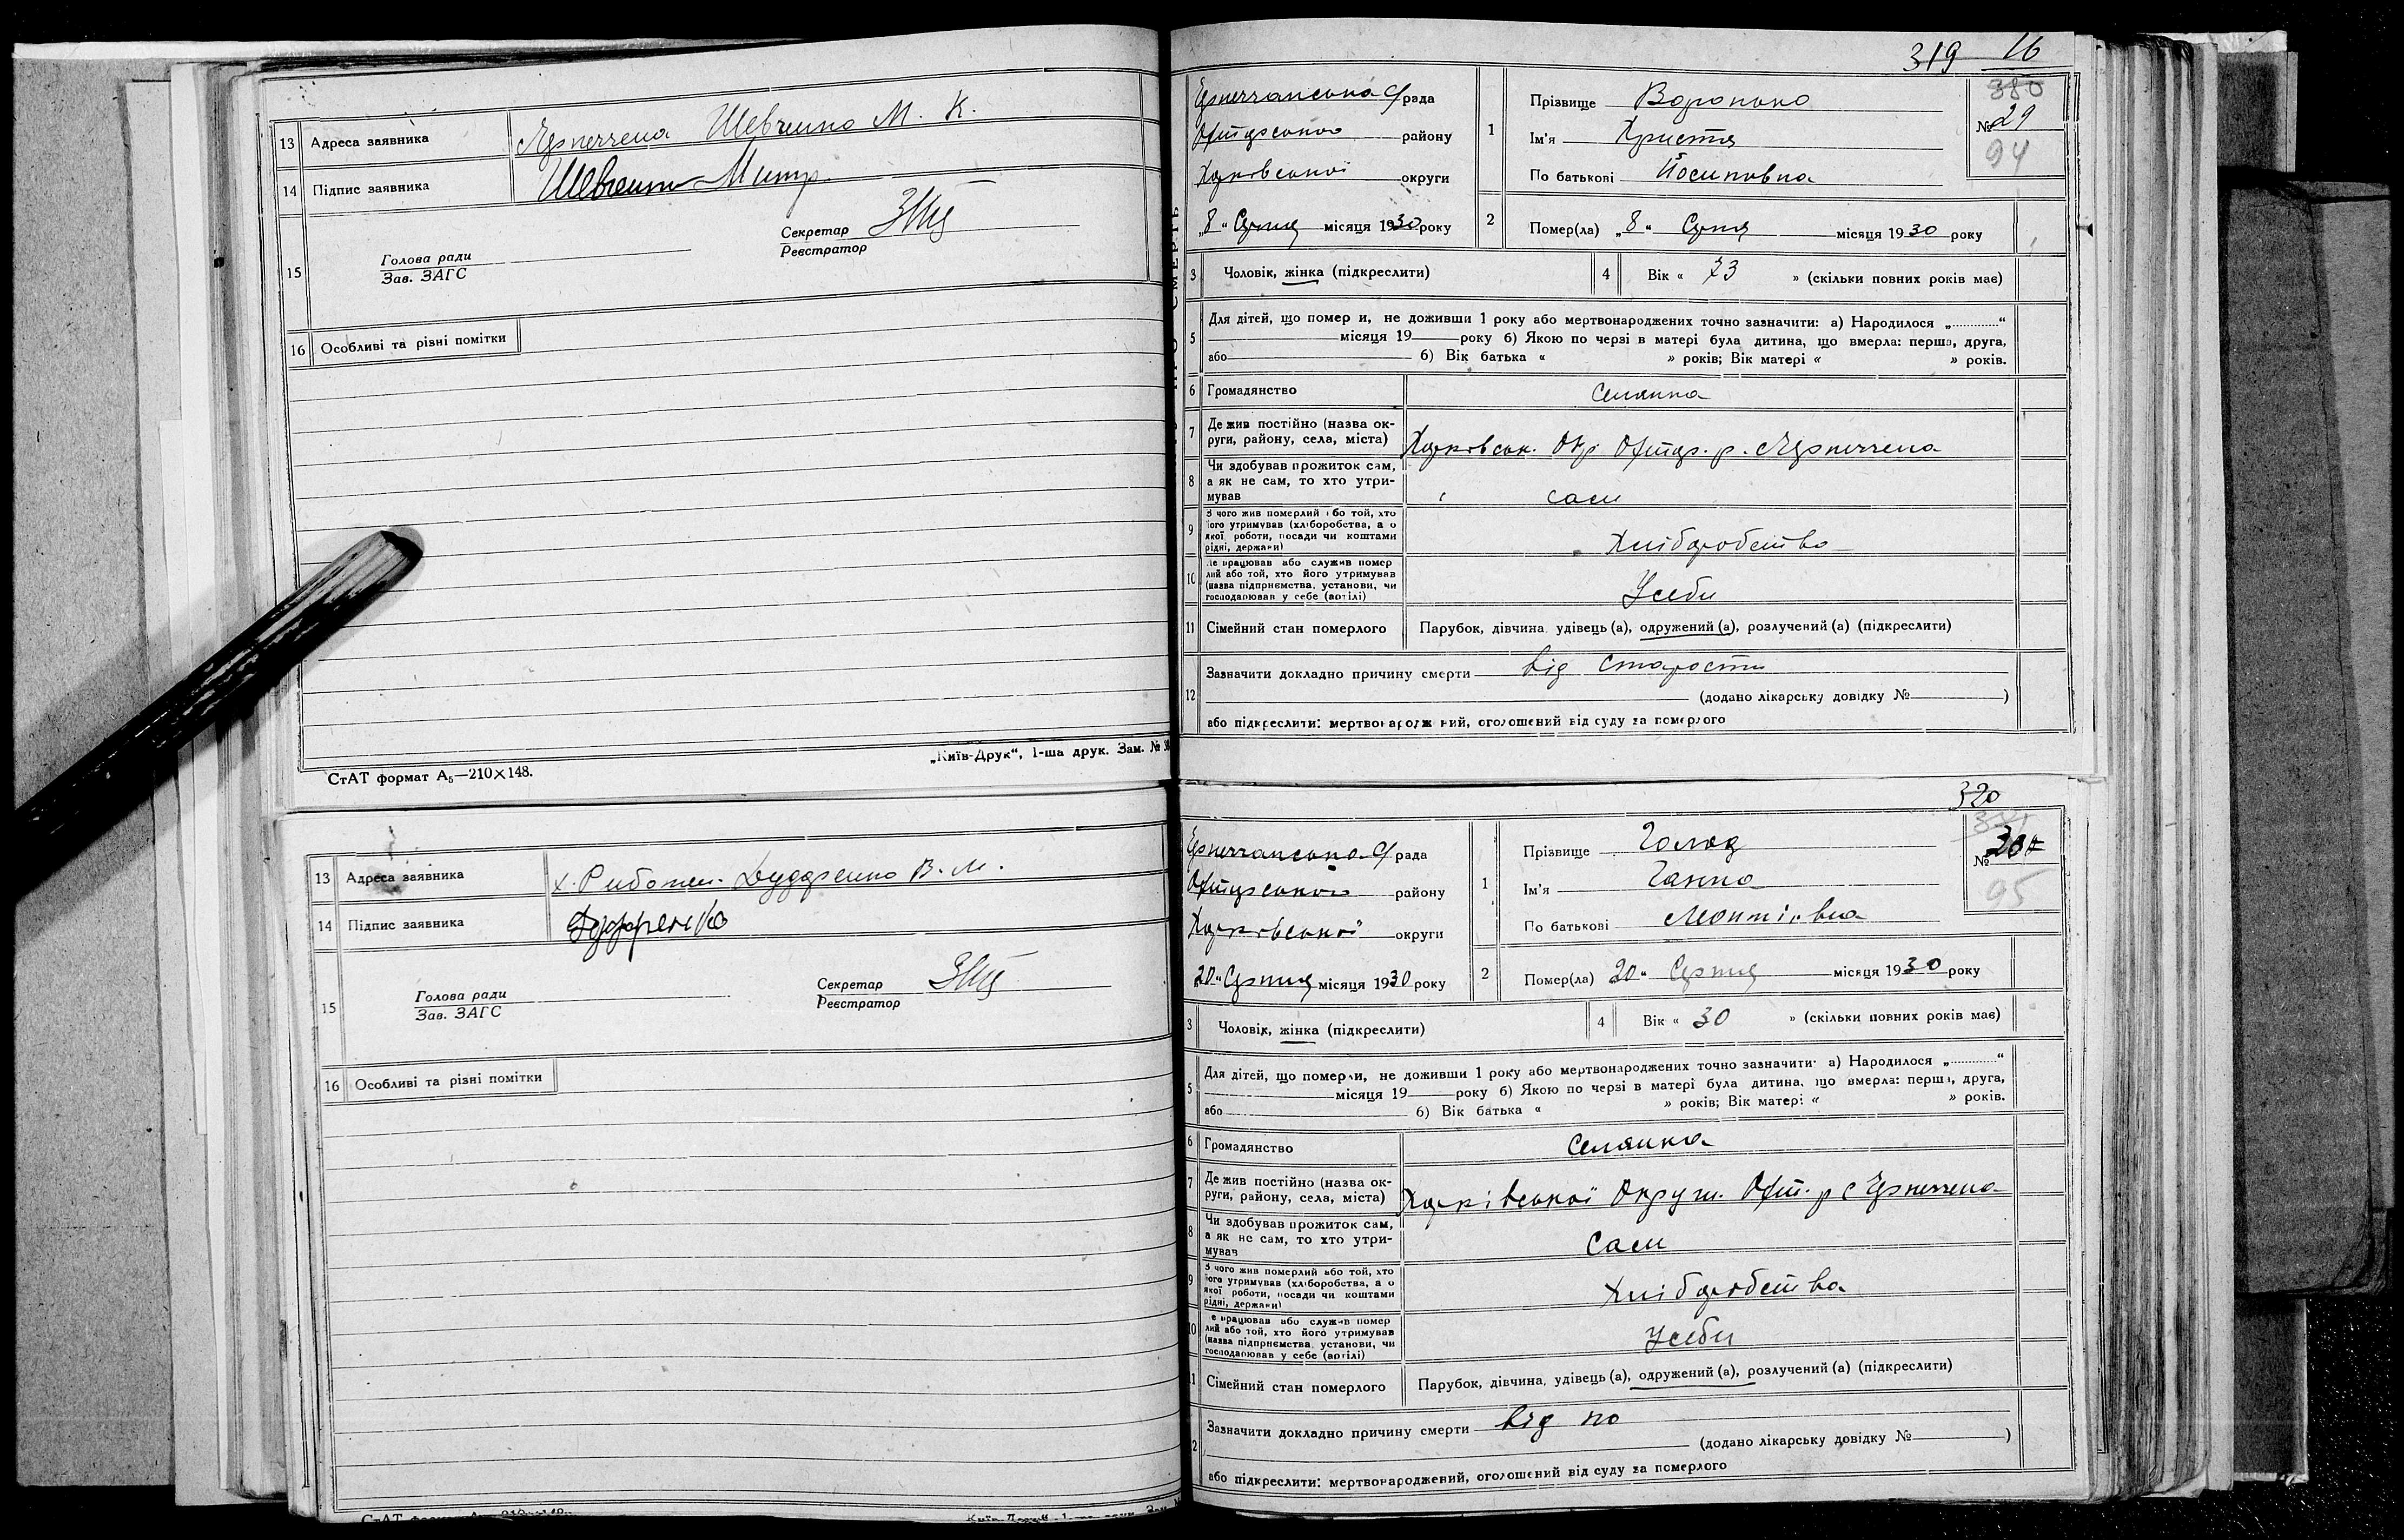 13 Адреса заявника Шевченко М. К.
14 Підпис заявника
15 Голова ради
Зав. ЗАГС
Секретар
Реєстратор
16 Особливі та різні помітки
СтАТ формат А₅—210×148.
„Київ-Друк“, 1-ша друк. Зам. №
13 Адреса заявника В. М.
14 Підпис заявника
15 Голова ради
Зав. ЗАГС
Секретар
Реєстратор
16 Особливі та різні помітки
319 16
380
рада
району
Харківської округи
„8“ Серпня місяця 1930 року
1 Прізвище
Ім'я Христя
По батькові Йосиповна
№ 29
94
2 Помер(ла) „8“ Серпня місяця 1930 року
3 Чоловік, жінка (підкреслити)
4 Вік « 73 » (скільки повних років має)
5 Для дітей, що померли, не доживши 1 року або мертвонароджених точно зазначити: а) Народилося „............“
місяця 19 року б) Якою по черзі в матері була дитина, що вмерла: перша, друга,
або б) Вік батька « » років; Вік матері « » років.
6 Громадянство Селянка
7 Де жив постійно (назва ок-
руги, району, села, міста) Харківськ. Окр.
8 Чи здобував прожиток сам,
а як не сам, то хто утри-
мував сами
9 З чого жив померлий або той, хто
його утримував (хліборобства, а о
якої роботи, посади чи коштами
рідні, держави) Хліборобства
10 Де працював або служив помер
лий або той, хто його утримував
(назва підприємства, установи, чи
господарював у себе (артілі) Усеби
11 Сімейний стан померлого Парубок, дівчина, удівець (а), одружений (а), розлучений (а) (підкреслити)
12 Зазначити докладно причину смерти від старости
(додано лікарську довідку № )
або підкреслити: мертвонароджений, оголошений від суду за померлого
320
рада
району
Харківської округи
„20“ Серпня місяця 1930 року
1 Прізвище Голод
Ім'я Ганна
По батькові
№ 30
95
2 Помер(ла) 20“ Серпня місяця 1930 року
3 Чоловік, жінка (підкреслити)
4 Вік « 30 » (скільки повних років має)
5 Для дітей, що померли, не доживши 1 року або мертвонароджених точно зазначити: а) Народилося „............“
місяця 19 року б) Якою по черзі в матері була дитина, що вмерла: перша, друга,
або б) Вік батька « » років; Вік матері « » років.
6 Громадянство Селянка
7 Де жив постійно (назва ок-
руги, району, села, міста) Харківської Округи
8 Чи здобував прожиток сам,
а як не сам, то хто утри-
мував Сами
9 З чого жив померлий або той, хто
його утримував (хліборобства, а о
якої роботи, посади чи коштами
рідні, держави) Хліборобства
10 Де працював або служив помер
лий або той, хто його утримував
(назва підприємства, установи, чи
господарював у себе (артілі) Усеби
11 Сімейний стан померлого Парубок, дівчина, удівець (а), одружений (а), розлучений (а) (підкреслити)
12 Зазначити докладно причину смерти від
(додано лікарську довідку № )
або підкреслити: мертвонароджений, оголошений від суду за померлого